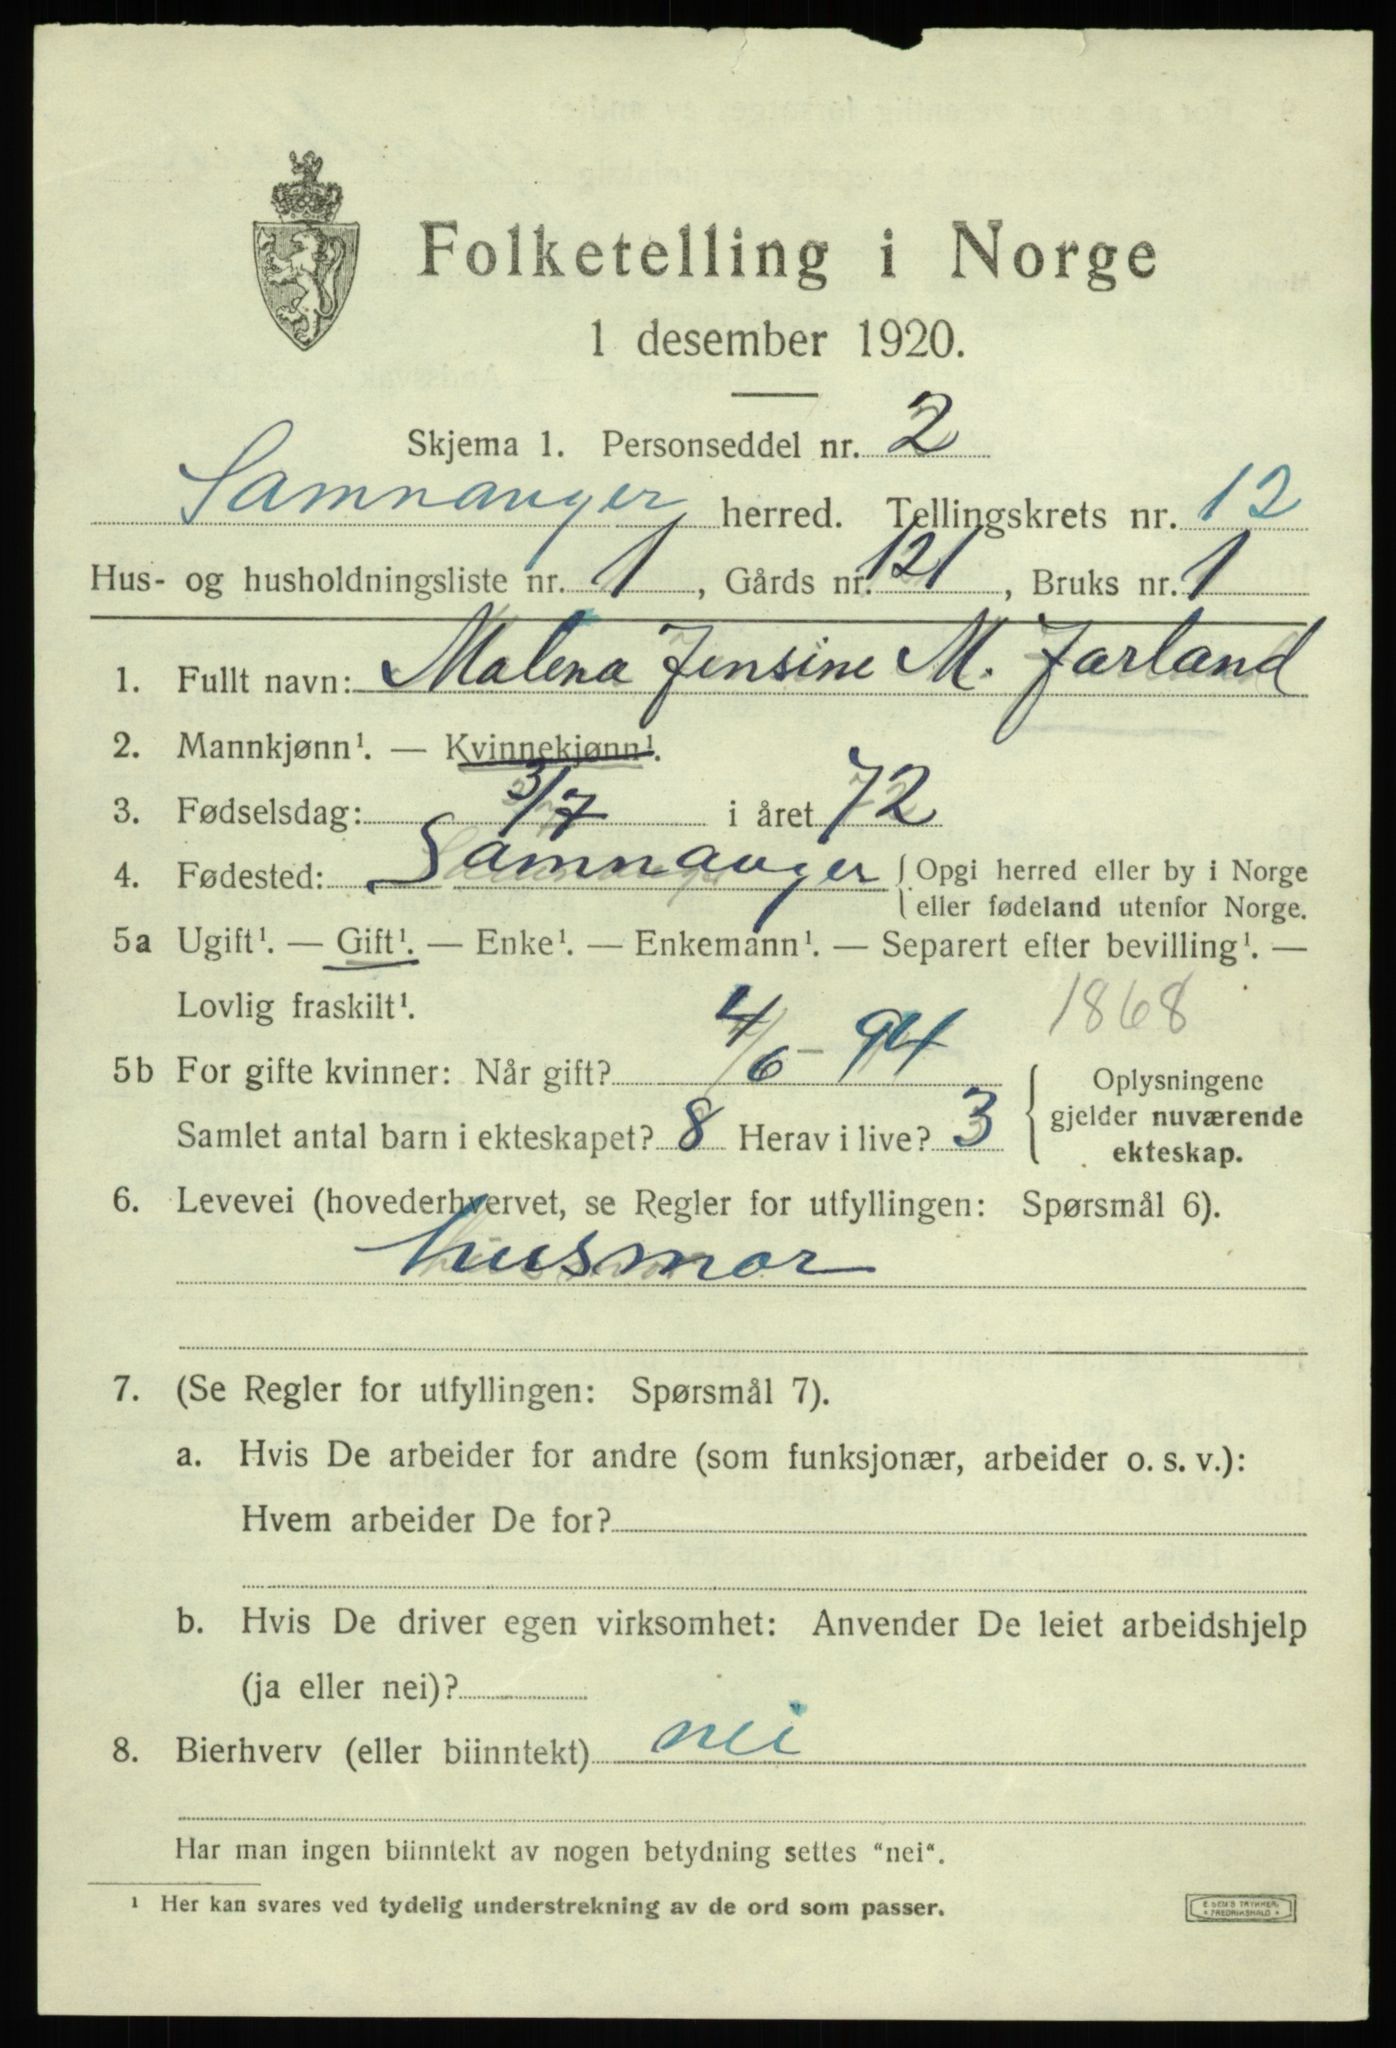 Folketelling i Norge
1 desember 1920.
Skjema 1. Personseddel nr. 2
Samnanger herred. Tellingskrets nr. 12
Hus- og husholdningsliste nr. 1, Gårds nr. 121, Bruks nr. 1
1. Fullt navn: Malena Jensine M. Jarland
2. Mannkjønn¹. — Kvinnekjønn¹.
3. Fødselsdag: 3/7 i året 72
4. Fødested: Samnanger { Opgi herred eller by i Norge
eller fødeland utenfor Norge.
5a Ugift¹. — Gift¹. — Enke¹. — Enkemann¹. — Separert efter bevilling¹. —
Lovlig fraskilt¹. 1868
5b For gifte kvinner: Når gift? 4/6 - 94 { Oplysningene
gjelder nuværende
Samlet antal barn i ekteskapet? 8 Herav i live? 3 ekteskap.
6. Levevei (hovederhvervet, se Regler for utfyllingen: Spørsmål 6).
husmor
7. (Se Regler for utfyllingen: Spørsmål 7).
a. Hvis De arbeider for andre (som funksjonær, arbeider o. s. v.):
Hvem arbeider De for?
b. Hvis De driver egen virksomhet: Anvender De leiet arbeidshjelp
(ja eller nei)?
8. Bierhverv (eller biinntekt) nei
Har man ingen biinntekt av nogen betydning settes "nei".
¹ Her kan svares ved tydelig understrekning av de ord som passer.